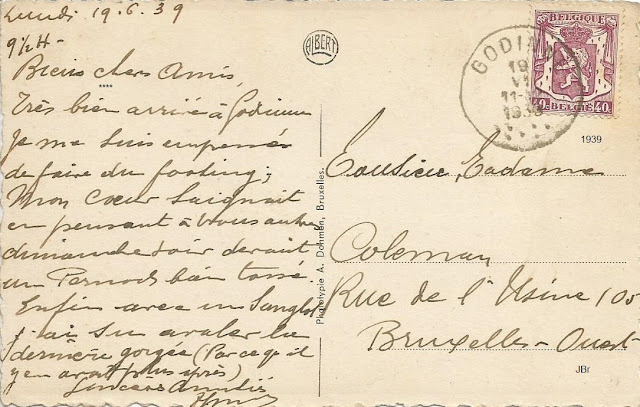 Lundi 19.6.39
9½ H-
Biens chers Amis,
****
Très bien arrivé à Godinne
Je me suis empressé
de faire du footing;
Mon Cœur Saignait
en pensant à Vous autres
dimanche soir devant
un Pernod bien tassé.
Enfin avec un Sanglot
j'ai su avaler la
dernière gorgée (Parce qu'il
y en avait plus après)
Sincères Amitiés
ALBERT
GODINNE
19
VI
11-
1939
BELGIQUE
40 BELGIE 40
1939
Phototypie A. Dohmen, Bruxelles.
Monsieur, Madame
Coleman
Rue de l'Usine 105
Bruxelles-Ouest
JBr